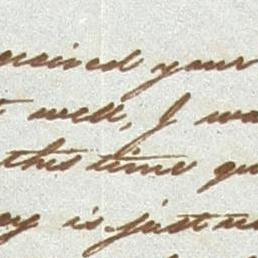 received your
t well, I wa
this time qu
ey is just n